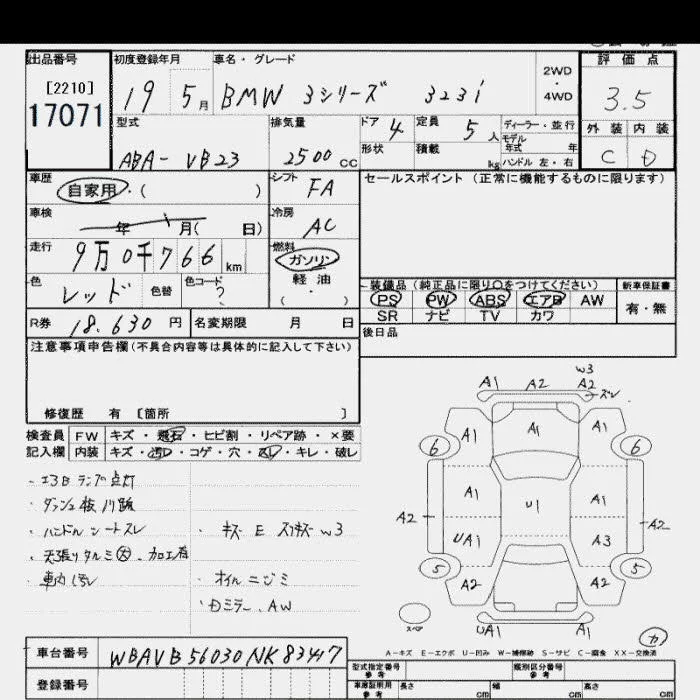 出品番号
[2210]
17071
初度登録年月
19 5月
車名・グレード
BMW 3シリーズ 323i
2WD
・
4WD
評価点
3.5
外装 内装
C D
型式
ABA- VB23
排気量
2500 CC
ドア 4
定員 5人
ディーラー・並行
モデル
年式 年
形状
積載 kg
ハンドル 左・右
車歴
自家用・( )
シフト
FA
セールスポイント (正常に機能するものに限ります)
車検
年 月( 日)
冷房
AC
走行
9万0千766 km
燃料
ガソリン
軽油
・
( )
色
レッド
色替
色コード
?
装備品 (純正品に限り〇をつけてください)
新車保証書
PS PW ABS エアB AW
有・無
SR ナビ TV カワ
R券 18,630 円
名変期限 月 日
後日品
注意事項申告欄(不具合内容等は具体的に記入して下さい)
修復歴 有 [箇所 ]
検査員 FW キズ・飛石・ヒビ割・リペア跡・×要
記入欄 内装 キズ・汚レ・コゲ・穴・スレ・キレ・破レ
・エアBランプ点灯
・ハンドル シートスレ
・キズ E スリキズ W3
・車内汚レ
・オイルニジミ
・Dミラー、AW
W3
A1 A2 A2
ズレ
A1 A1 A1
6 6
A1 U1 A1
A2 A2
UA1 A3
5 5
A2 A2
スペア
UA1 A1
カ
A-キズ E-エクボ U-凹み W-補修跡 S-サビ C-腐食 XX-交換済
車台番号 WBAVB56030NK83447
型式指定番号
参考
類別区分番号
参考
登録番号
車庫証明用
参考
長さ cm
幅 cm
高さ cm